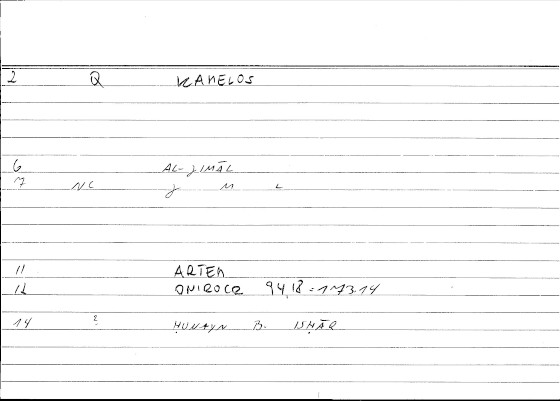 2 Q KAMELOS
6 AL-JIMĀL
7 NC J M L
11 ARTEM
12 ONIROCR 94,18=173.14
14 2 ḤUNAYN B. ISḤĀQ